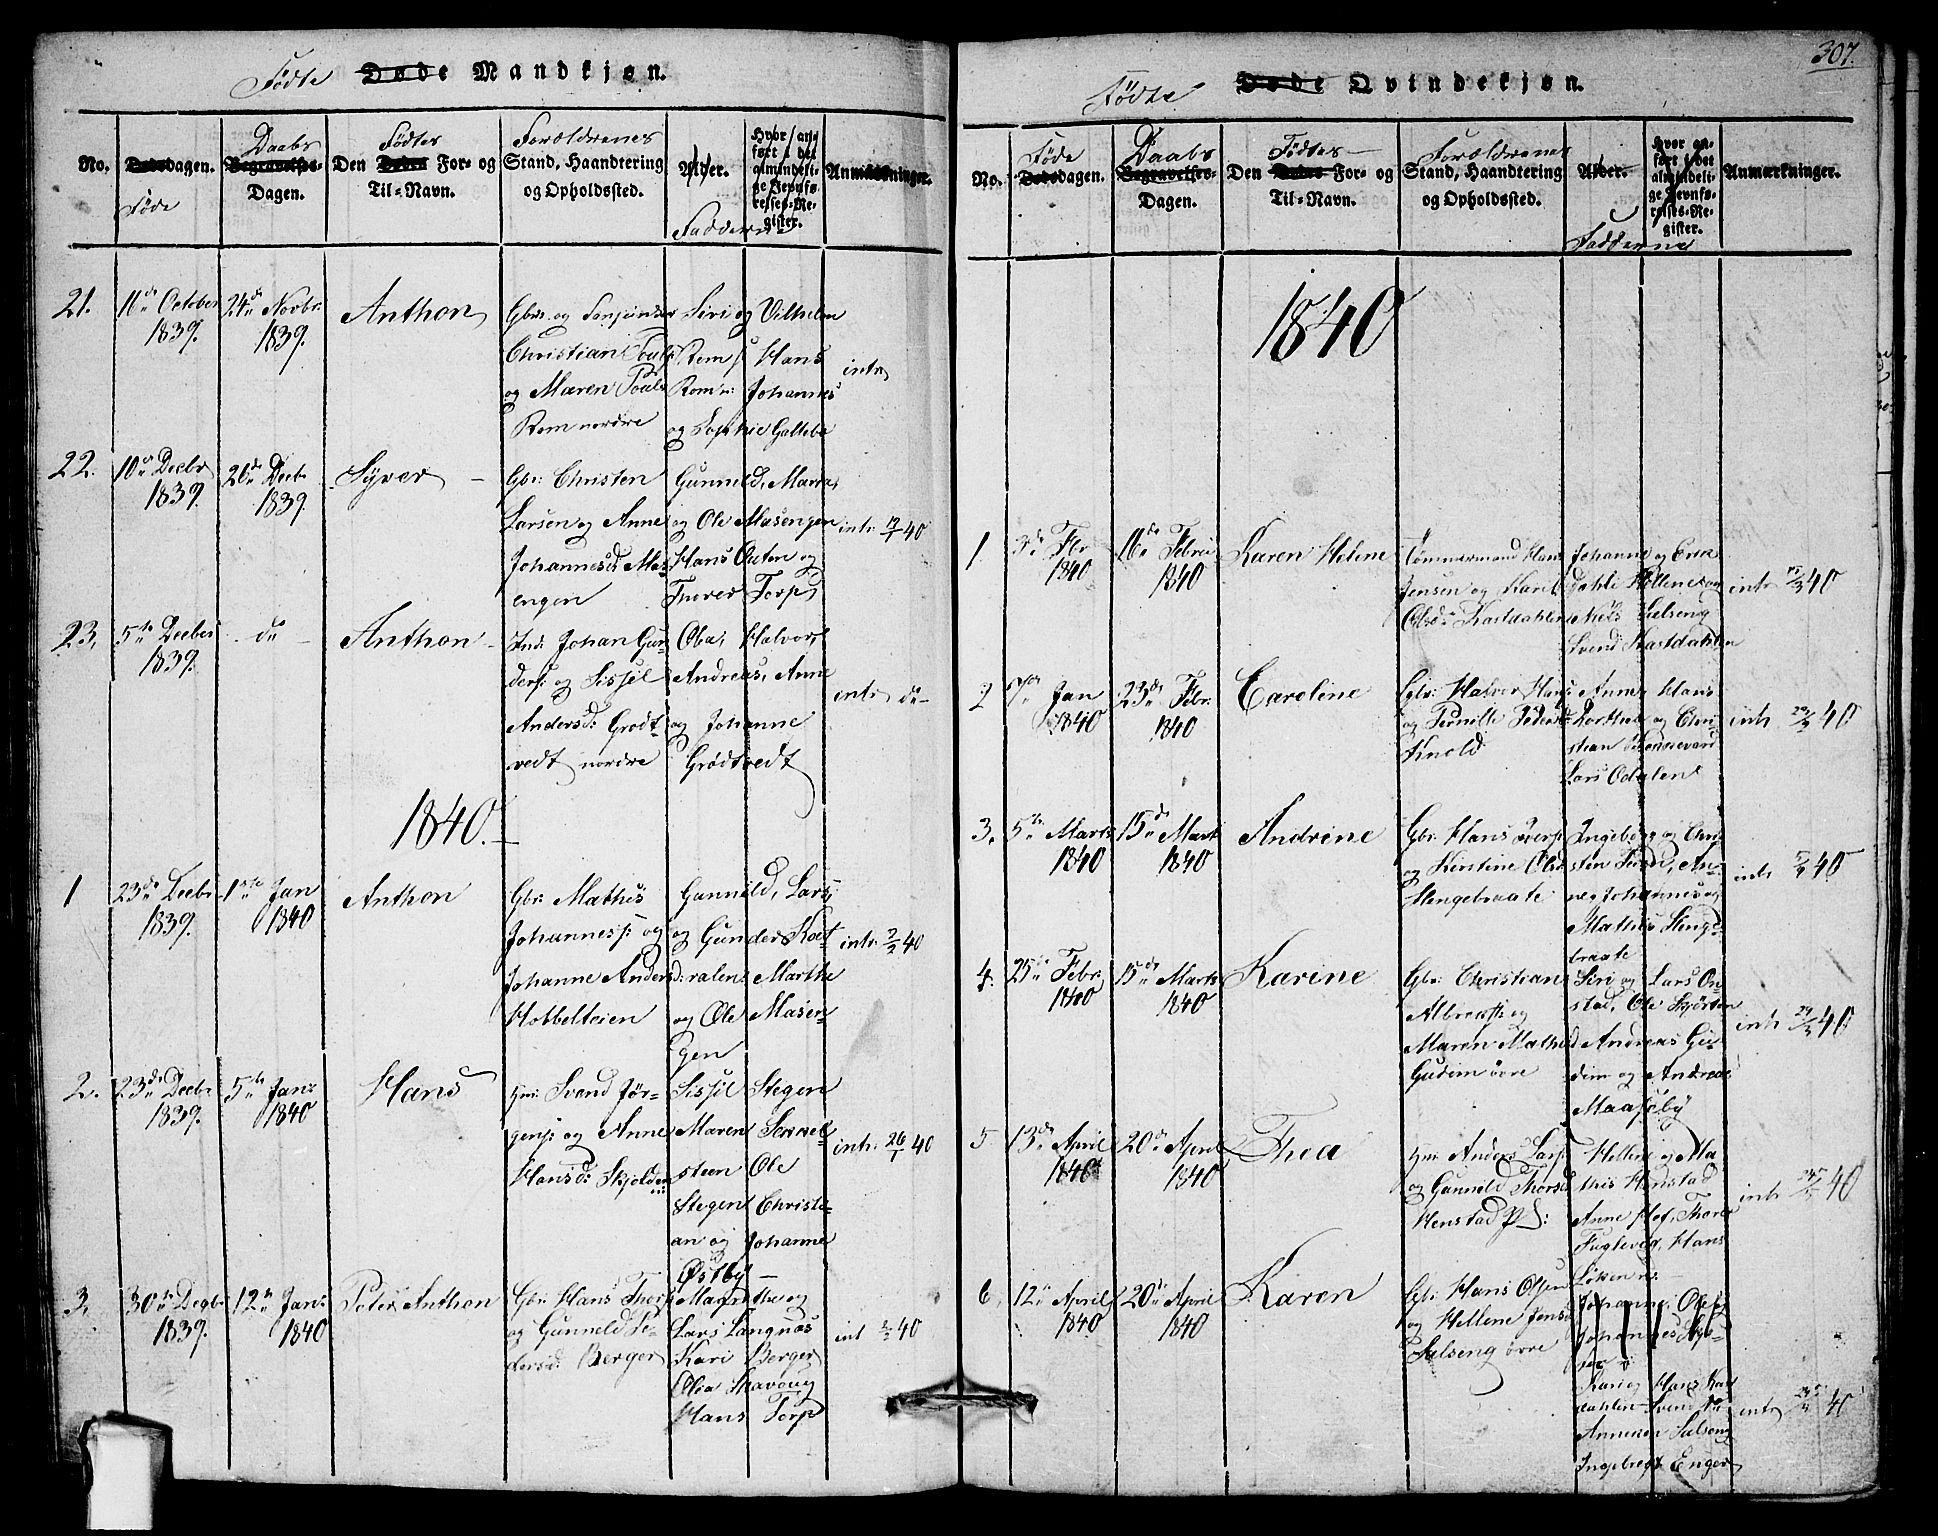 307.
Fødte Døde Mandkjøn.
No.
Dødsdagen.
Føde
Daabs
Begravelses-
Dagen.
Fødtes
Den Dødes For- og
Til-Navn.
Forældrenes
Stand, Haandtering
og Opholdssted.
Alder.
Hvor an-
ført i det
almindeli-
ge Jevnfø-
relses-Re-
gister.
Fadderne
Anmærkninger.
21.
11te October
1839.
24de Novbr.
1839.
Anthon
Christian
og Maren
Rem nordre
Siri og Vilhelm
Rem Hans
Johannes
og Sophie
intr
22.
10de Decbr
1839.
26de Decbr
1839.
Syver
Gbr: Christen
Larsen og Anne
Johannesd: Mas-
engen
Gunneld, Maria,
og Ole Masengen
Hans og
Torp
intr. 40
23.
5te Decbr
1839.
do
Anthon
Ind: Johan Gun-
ders: og Sissil
Andersd: Grødt-
vedt nordre
Halvor,
Andreas, Anne
og Johanne
Grødtvedt
intr do
1840.
1
23de Decbr
1839.
1ste Jan
1840
Anthon
Gbr: Mathis
Johannes: og
Johanne Andersd:
Hobbelteien
Gunnild, Lars,
og Gunder
Marthe
og Ole Masen-
gen
intr. 2/2 40
2.
23de Decbr
1839.
5te Jan:
1840
Hans
Hm: Svend Jør-
gens: og Anne
Hansd: Skjolden
Sissil Stegen
Maren
steen Ole
Stegen Christi-
an og Johanne
Østby
intr: 26/1 40
3.
30te Decbr
1839.
12te Jan:
1840
Peter Anthon
Gbr: Hans Thors:
og Gunneld Pe-
dersd: Berger
Marthe og
Lars Langnæs
Kari Berger
Olia
Hans Torp
int 2/2 40
Fødte Døde Qvindekjøn.
No.
Føde
Dødsdagen.
Daabs
Begravelses-
Dagen.
Fødtes
Den Dødes For- og
Til-Navn.
Forældrenes
Stand, Haandtering
og Opholdssted.
Alder.
Hvor an-
ført i det
almindeli-
ge Jevnfø-
relses-Re-
gister.
Fadderne
Anmærkninger.
1840
1.
3de Fbr
1840
16de Febru
1840
Karen Helene
Tømmermand Hans
Jensen og Kari
Olsd: Kastdahlen
Johanne og
Hellene og
Niels Salseng
Svend Kastdahlen
intr 40
2
7de Jan
1840
23de Febr.
1840
Caroline
Gbr: Halvor Hans:
og Pernille Pedersd:
Knold
Anne, Hans
Dorthe og Chri-
stian
Lars Odalen
intr 40
3.
5te Marts
1840
15de Mart
1840
Andrine
Gbr: Hans
og Kirstine Olsd
Hengebraate
Ingeborg og Chri-
sten An-
ne, Johannes og
Mathis Henge-
braate
intr 40
4.
25de Febr.
1840
15de Marts
1840
Karine
Gbr: Christian
Albrects: og
Maren Mathisd
Gudim øvre
Siri og Lars On-
stad, Ole
Andreas Gu-
dim og Andreas
Maaseby
intr 40
5
13de April
1840
20de April
1840
Thea
Hm: Anders Lars:
og Gunnild Thorsd
Henstad
Hellene og Ma-
this Henstad
Anne Hof, Thorer
Fuglevig, Hans
Løken
intr 40
6.
12te April
1840
20de April
1840
Karen
Gbr: Hans Olsen
og Hellene Jensd
Salseng øvre
Johanne, Ole
Johannes
Kari og Hans Kast
dahlen Svend do
Anneken Salseng
Ingebregt Enger
intr 40